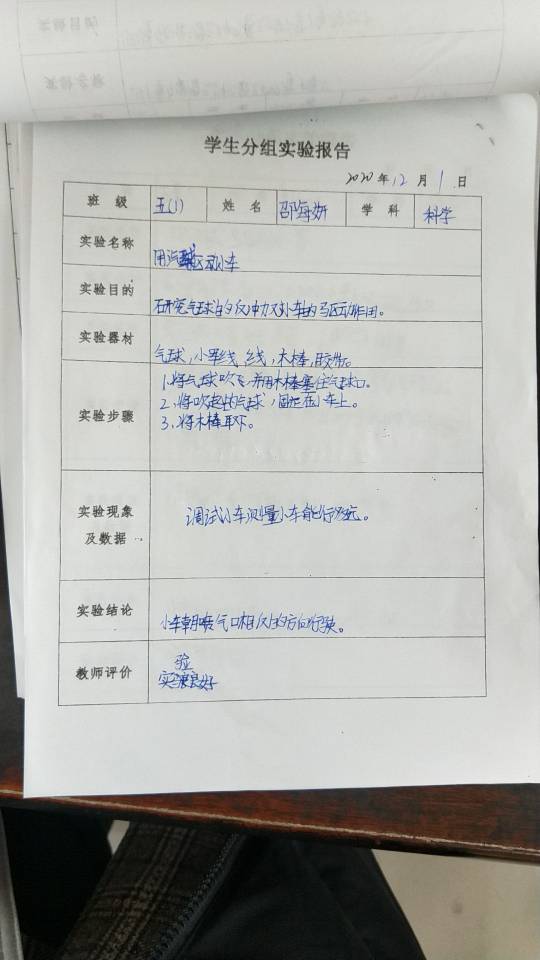 学生分组实验报告
2020年12月1日
班级 五(1) 姓名 邵海妍 学科 科学
实验名称 用汽球驱动小车
实验目的 研究气球的反冲力对小车的驱动作用。
实验器材 气球,小车线,线,木棒,胶带。
实验步骤 1、将气球吹飞,并用木棒塞住气球口。
2、将吹起的气球,固定在小车上。
3、将木棒取下。
实验现象
及数据
调试小车测量小车能行多远。
实验结论 小车朝喷气口相反的方向行驶。
教师评价 实验良好